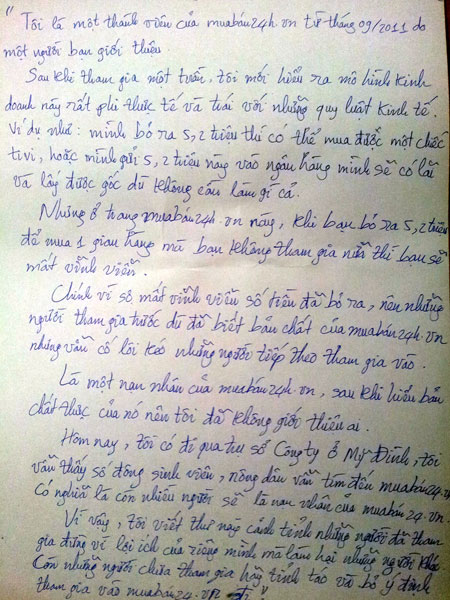 "Tôi là một thành viên của muabán24h.vn từ tháng 09/2011 do
một người bạn giới thiệu.
Sau khi tham gia một tuần. tôi mới hiểu ra mô hình kinh
doanh này rất phi thực tế và trái với những quy luật kinh tế.
Ví dụ như: mình bỏ ra 5,2 triệu thì có thể mua được một chiếc
ti vi, hoặc mình gửi 5,2 triệu này vào ngân hàng mình sẽ có lãi
và lấy được gốc dù không cần làm gì cả.
Nhưng ở trang muabán24h.vn này, khi bạn bỏ ra 5,2 triệu
để mua 1 gian hàng mà bạn không tham gia nữa thì bạn sẽ
mất vĩnh viễn.
Chính vì sợ mất vĩnh viễn số tiền đã bỏ ra, nên những
người tham gia trước dù đã biết bản chất của muabán24h.vn
nhưng vẫn cố lôi kéo những người tiếp theo tham gia vào.
Là một nạn nhân của muabán24h.vn, sau khi hiểu bản
chất thực của nó nên tôi đã không giới thiệu ai.
Hôm nay, tôi có đi qua trụ sở Công ty ở Mỹ Đình, tôi
vẫn thấy số đông sinh viên, nông dân vẫn tìm đến muabán24.vn
Có nghĩa là còn nhiều người sẽ là nạn nhân của muabán24.vn.
Vì vậy, tôi viết thư này cảnh tỉnh những người đã tham
gia đừng vì lợi ích của riêng mình mà làm hại những người khác
Còn những người chưa tham gia hãy tỉnh táo và bỏ ý định
tham gia vào muabán24h.vn đi."